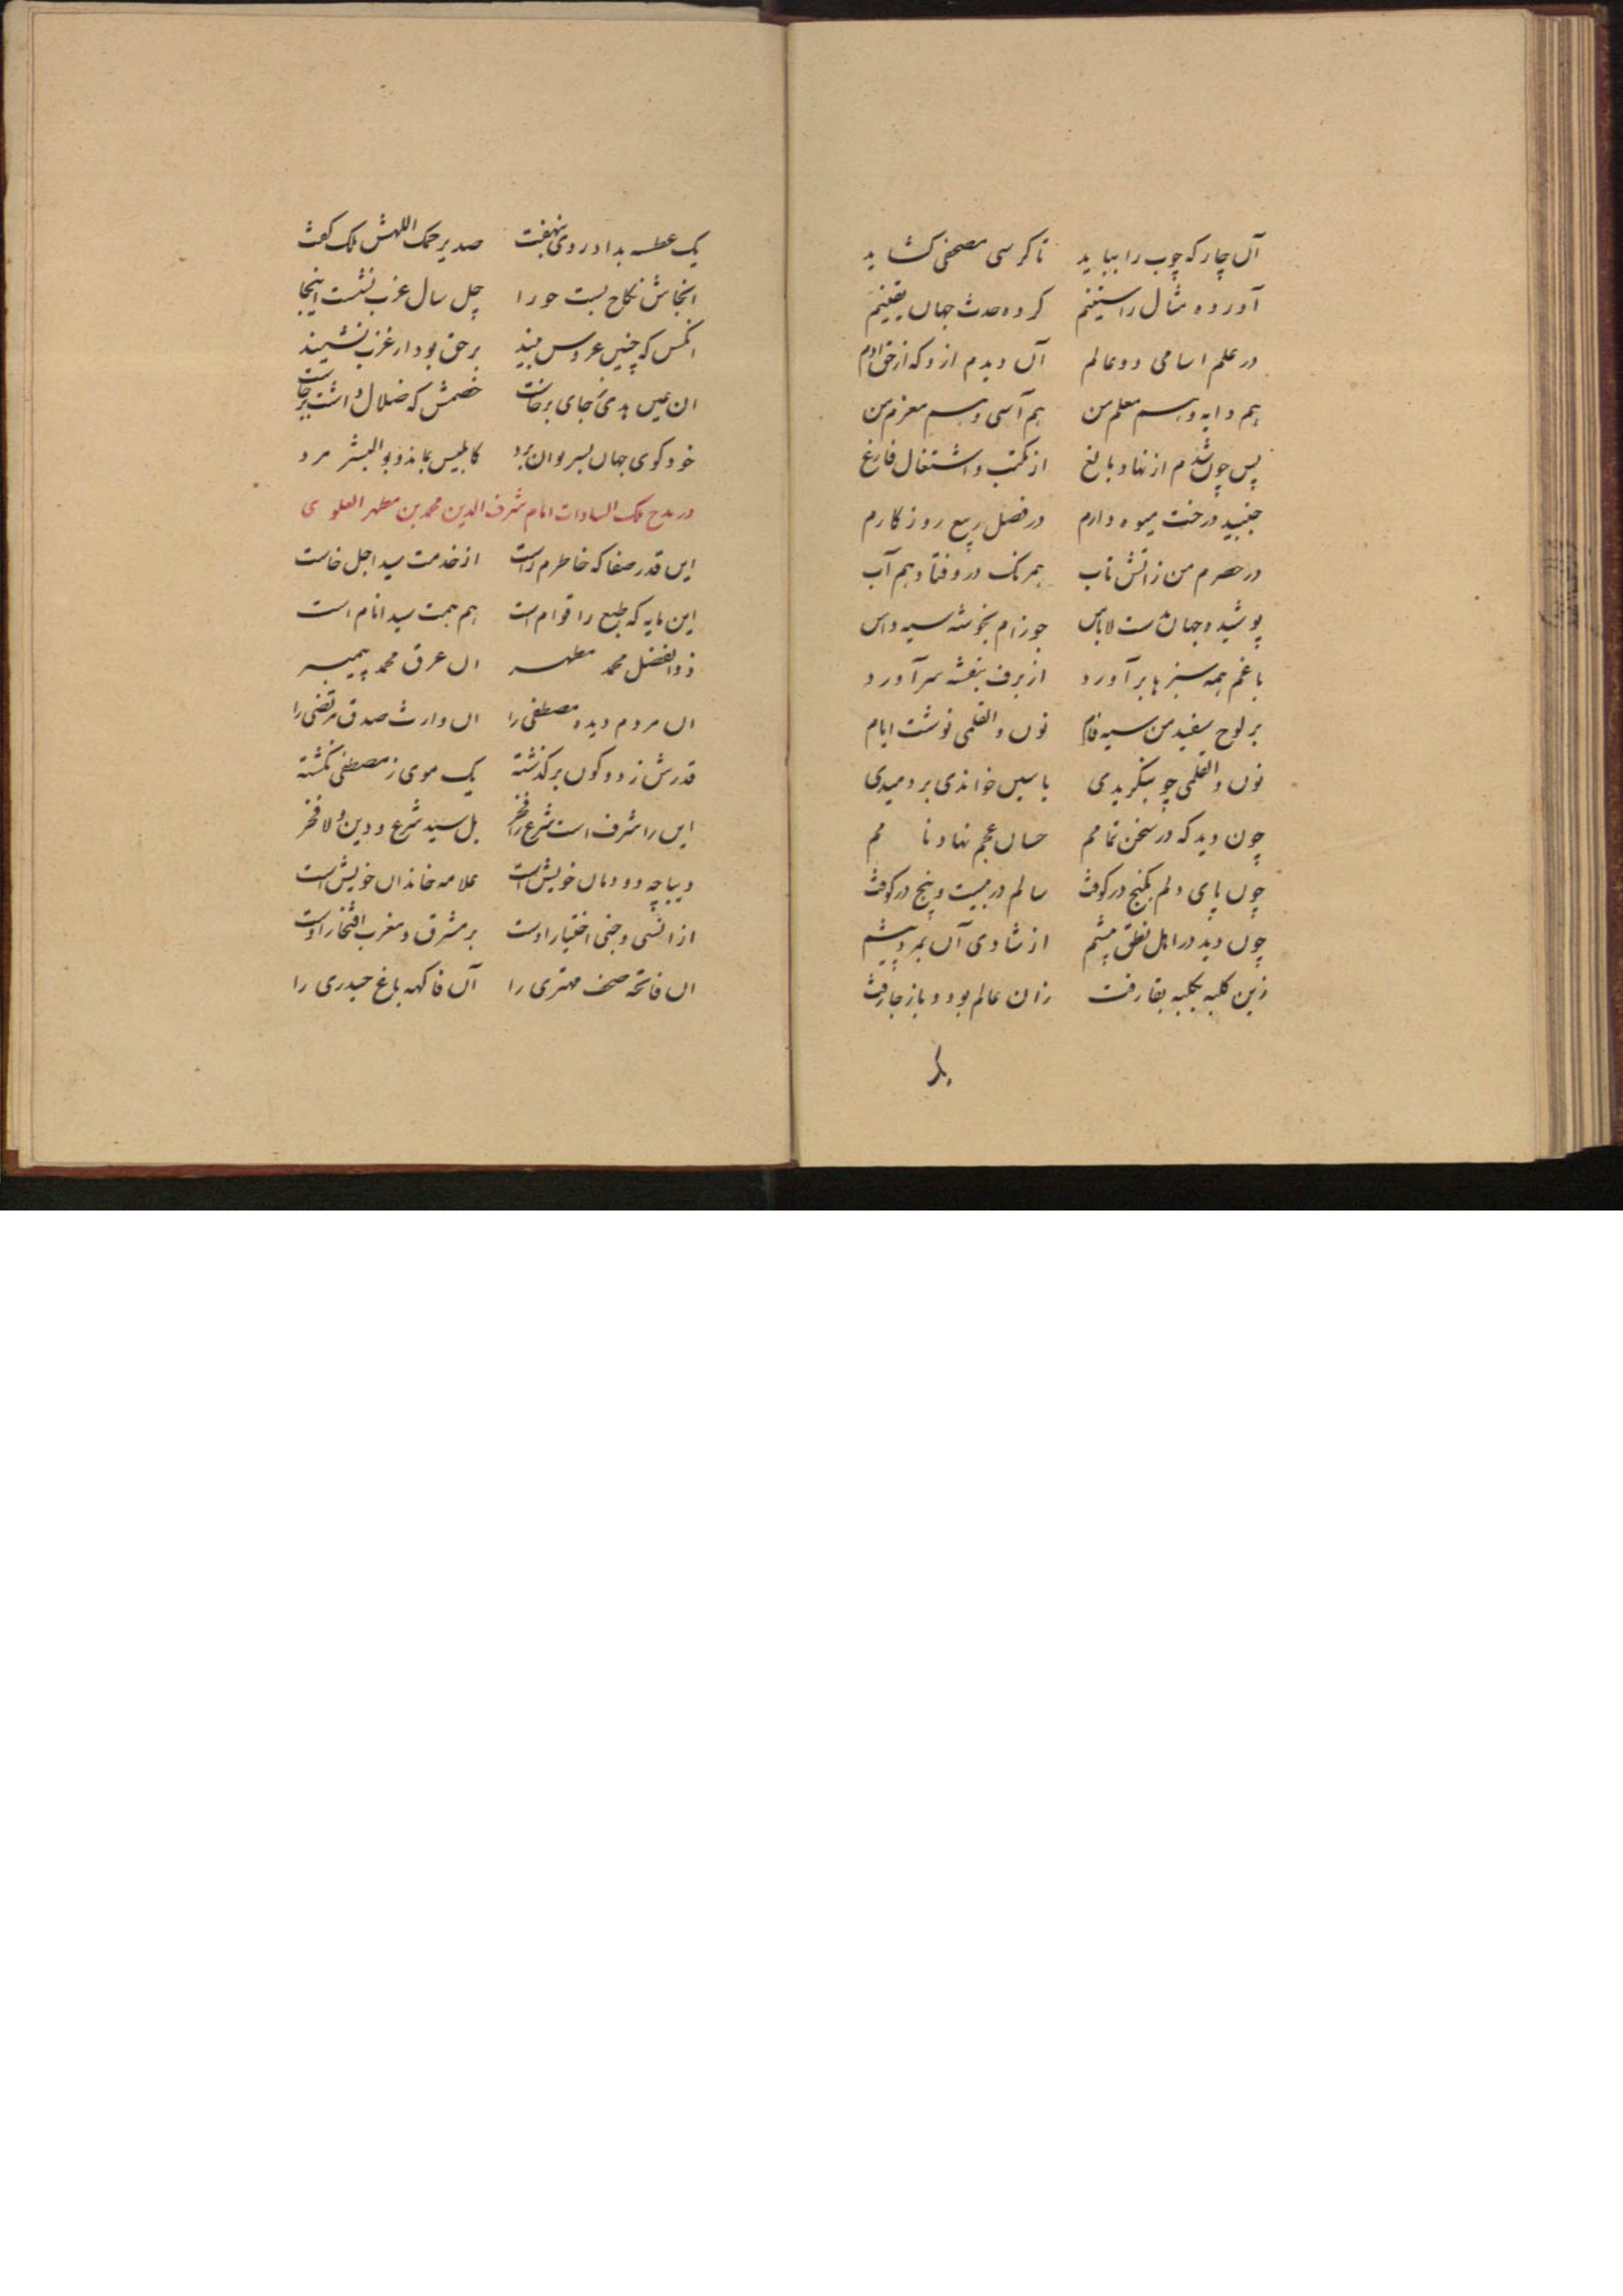 آن چار که چوب را بباید تا کرسی مصحفی کشاید
آورده مثال راستینم کرده حدث جهان یقینم
در علم اسامی دو عالم آن دیدم ازو که از حق ادم
هم دایه و هم معلم من هم آسی و هم معزم من
پس چون شدم از نهاد بالغ از مکتب و اشتغال فارغ
جنبید درخت میوه دارم در فصل ربیع روزکارم
در حصرم من ز اتش تاب همرنک در وفتاد و هم آب
پوشیده جهان لاباس جوزام بخوشه سیه داس
باغم همه سبزها برآورد از برف بنفشه سر آورد
بر لوح سفید من سیه فام نون والقلمی نوشت ایام
نون والقلمی چو بنکریدی یاسین خواندی بر دمیدی
چون دید که در سخن تمامم حسان عجم نهاد نامم
چون پای دلم بکنج در کوفت سالم در بیست و پنج در کوفت
چون دید در اهل نطق پیشم از شادی آن بمرد پیشم
زین کلبه بکلبه بقا رفت زان عالم بود و باز جا رفت
یک عطسه بداد و روی بنهفت صد یرحمک اللهش ملک کفت
انجاش نکاح بست حورا چل سال عزب نشست اینجا
انکس که چنین عروس بیند بر حق بود ار عزب نشیند
ان عین هدی ز جای برخاست خصمش که ضلال داشت برجاست
خود کوی جهان بسروان برد کابلیس بماند و بوالبشر مرد
در مدح ملک السادات امام شرف الدین محمد بن مطهر العلوی
این قدر صفا که خاطرم راست از خدمت سید اجل خاست
این مایه که طبع را قوام است هم همت سید انام است
ذوالفضل محمد مطهر ان عرق محمد پیمبر
ان مردم دیده مصطفی را ان وارث صدق مرتضی را
قدرش ز دو کون برکذشته یک موی ز مصطفی نکشته
این را شرف است شرع را فخر بل سید شرع و دین ولا فخر
دیباچه دودمان خویش است علامه خاندان خویش است
از انسی و جنی اختیار اوست بر مشرق و مغرب افتخار اوست
ان فاتحه صحف مهتری را آن فاکهه باغ حیدری را